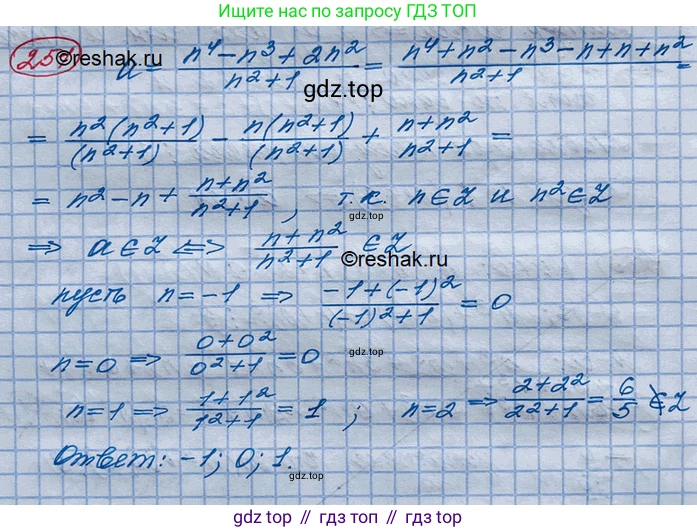 Ищите нас по запросу ГДЗ ТОП
251 ©reshak.ru a = (n⁴ − n³ + 2n²)/(n² + 1) = (n⁴ + n² − n³ − n + n + n²)/(n² + 1) =
gdz.top
= n²(n² + 1)/(n² + 1) − n(n² + 1)/(n² + 1) + (n + n²)/(n² + 1) =
= n² − n + (n + n²)/(n² + 1), т.к. n ∈ Z и n² ∈ Z
gdz.top
⇒ a ∈ Z ⟺ (n + n²)/(n² + 1) ∈ Z
gdz.top ©reshak.ru
пусть n = −1 ⇒ (−1 + (−1)²)/((−1)² + 1) = 0
n = 0 ⇒ (0 + 0²)/(0² + 1) = 0
gdz.top
n = 1 ⇒ (1 + 1²)/(1² + 1) = 1 ; n = 2 ⇒ (2 + 2²)/(2² + 1) = 6/5 ∉ Z
Ответ: −1; 0; 1.
gdz.top
gdz.top // gdz.top // gdz.top // gdz.top